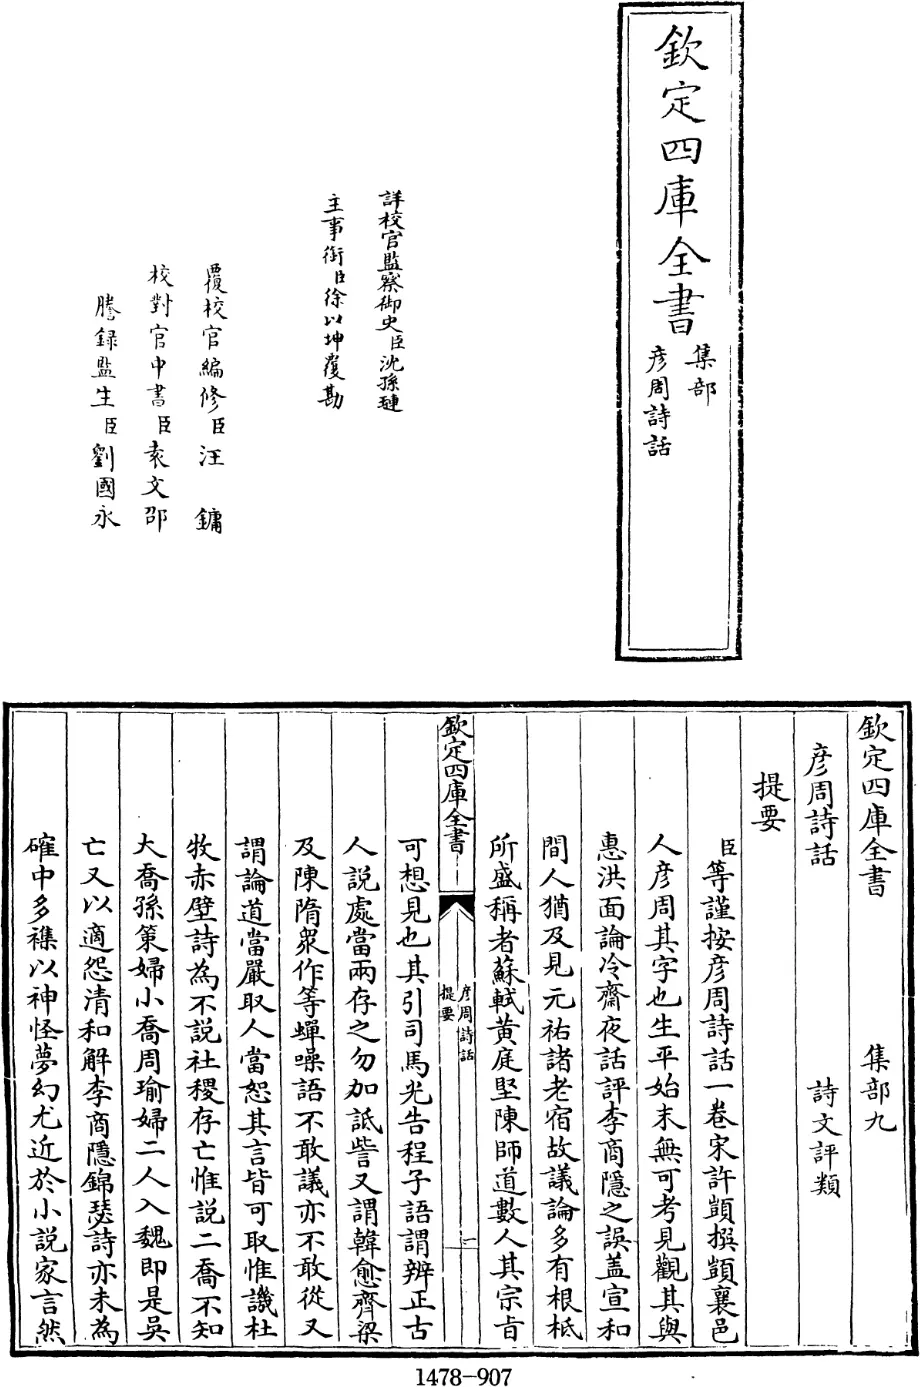 欽定四庫全書
集部
彥周詩話
詳校官監察御史臣沈孫璉
主事銜臣徐以坤覆勘
覆校官編修臣汪鏞
校對官中書臣袁文邵
謄錄監生臣劉國永
欽定四庫全書 集部九
彥周詩話 詩文評類
提要
臣等謹按彥周詩話一卷宋許顗撰顗襄邑
人彥周其字也生平始末無可考見觀其與
惠洪面論冷齋夜話評李商隱之誤盖宣和
間人猶及見元祐諸老宿故議論多有根柢
所盛稱者蘇軾黃庭堅陳師道數人其宗旨
欽定四庫全書
彥周詩話
提要
一
可想見也其引司馬光告程子語謂辨正古
人說處當兩存之勿加詆訾又謂韓愈齊梁
及陳隋衆作等蟬噪語不敢議亦不敢從又
謂論道當嚴取人當恕其言皆可取惟譏杜
牧赤壁詩為不說社稷存亡惟說二喬不知
大喬孫策婦小喬周瑜婦二人入魏即是吳
亡又以適怨清和解李商隱錦瑟詩亦未為
確中多襍以神怪夢幻尤近於小說家言然
1478-907